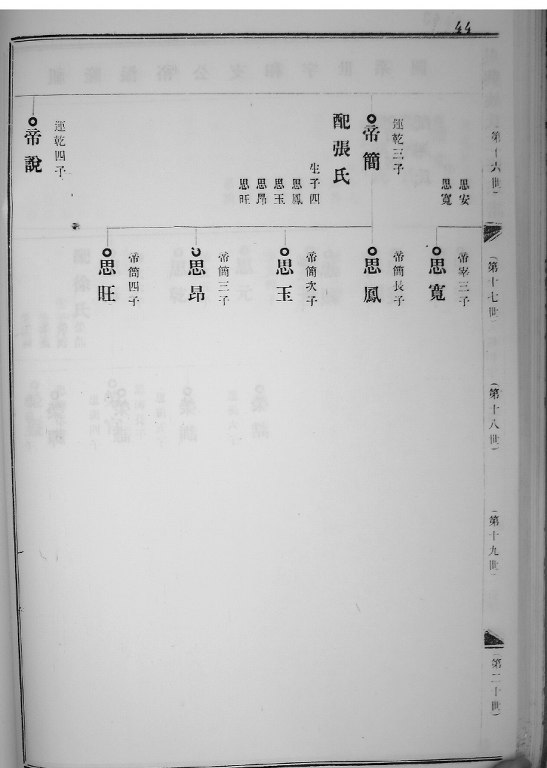 44
第十六世
思安
思寬
運乾三子
帝簡
配張氏
生子四
思鳳
思玉
思昂
思旺
運乾四子
帝說
第十七世
帝宰三子
思寬
帝簡長子
思鳳
帝簡次子
思玉
帝簡三子
思昂
帝簡四子
思旺
(第十八世)
(第十九世)
(第二十世)